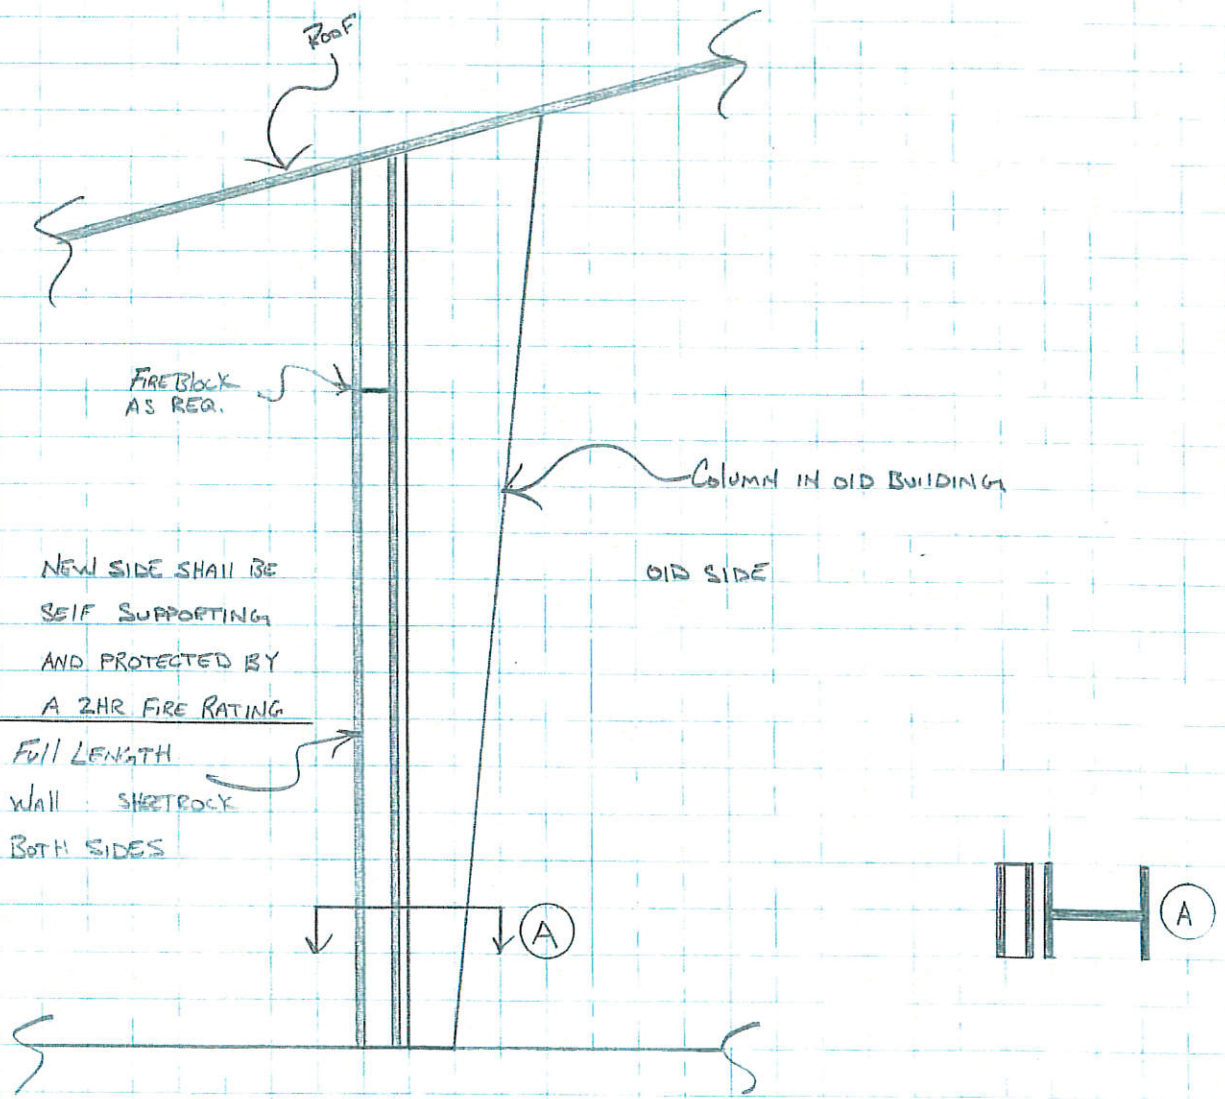 ROOF
FIREBLOCK
AS REQ.
COLUMN IN OLD BUILDING
NEW SIDE SHALL BE
SELF SUPPORTING
AND PROTECTED BY
A 2HR FIRE RATING
OLD SIDE
FULL LENGTH
WALL SHEETROCK
BOTH SIDES
A
A